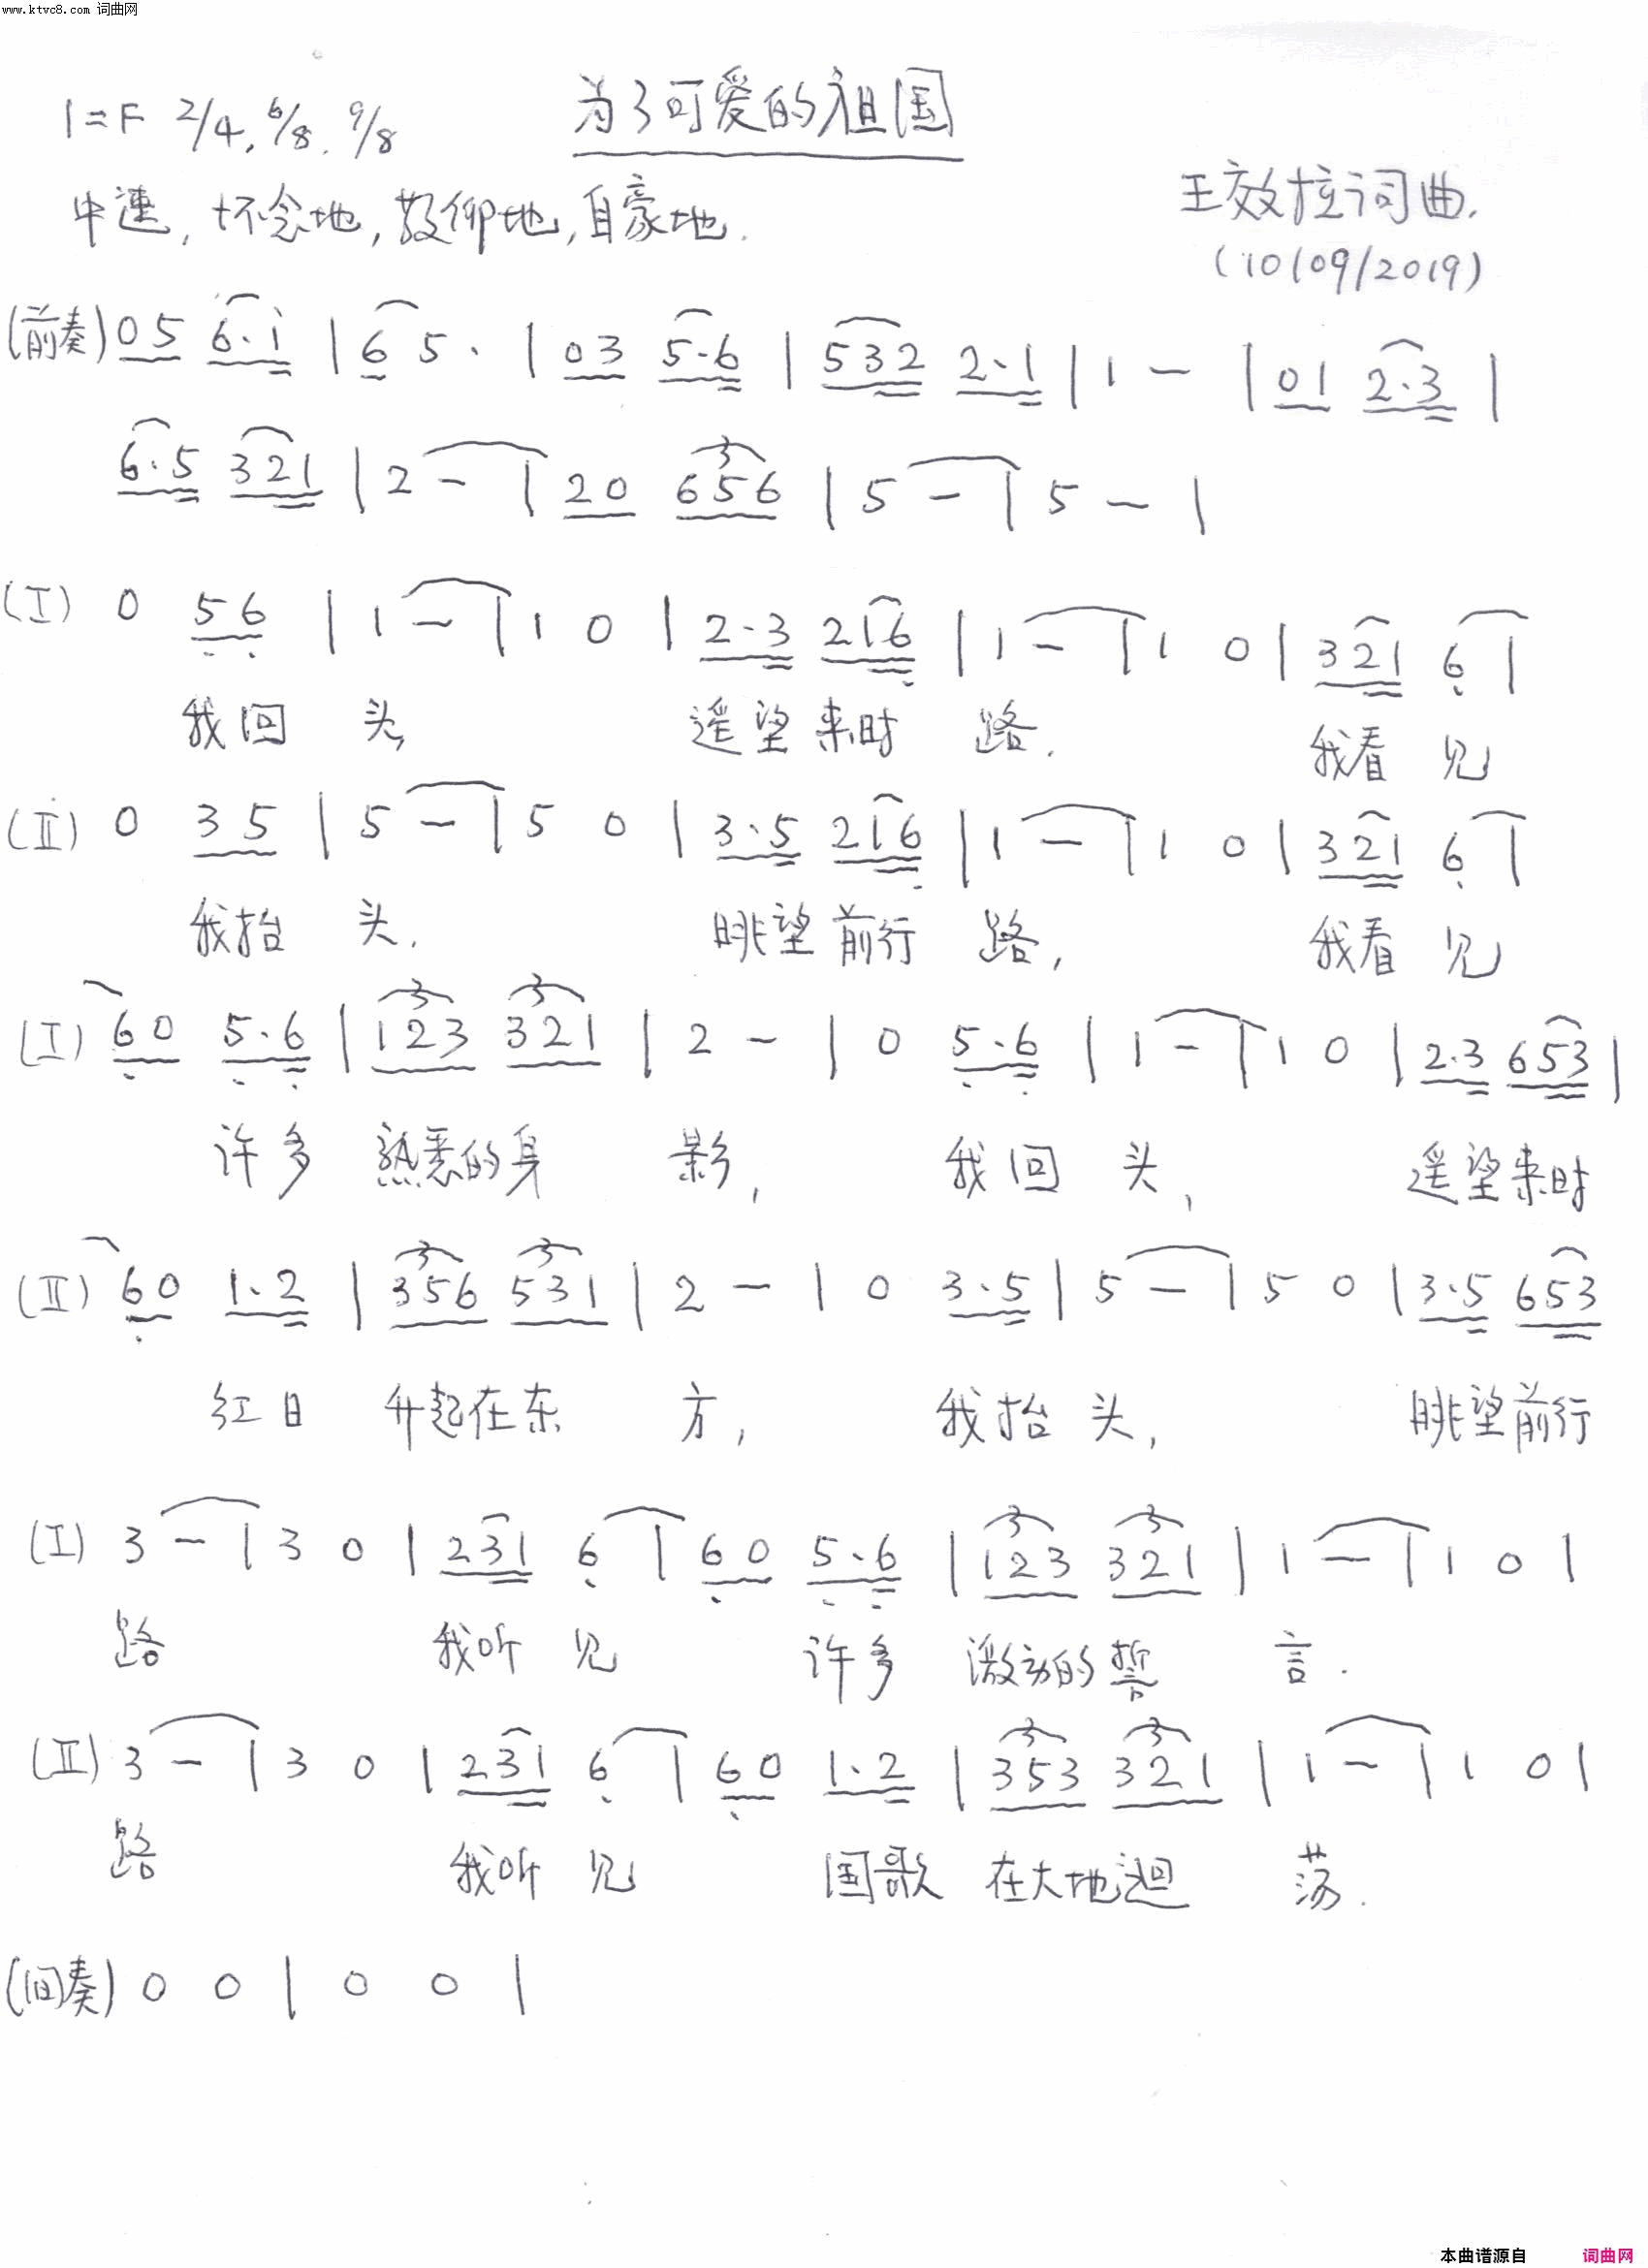 www.ktvc8.com 词曲网
为了可爱的祖国
1=F 2/4, 6/8, 9/8
中速, 怀念地, 敬仰地, 自豪地.
王效拉词曲.
(10/09/2019)
(前奏) 05 6.i | 6 5. | 03 5.6 | 532 2.1 | 1 - | 01 2.3 |
6.5 321 | 2 - | 20 656 | 5 - | 5 - |
(I) 0 56 | 1 - | 1 0 | 2.3 216 | 1 - | 1 0 | 321 6 |
我回 头, 遥望来时 路. 我看 见
(II) 0 35 | 5 - | 5 0 | 3.5 216 | 1 - | 1 0 | 321 6 |
我抬 头. 眺望前行 路, 我看 见
(I) 60 5.6 | 123 321 | 2 - | 0 5.6 | 1 - | 1 0 | 2.3 653 |
许多 熟悉的身 影, 我回 头, 遥望来时
(II) 60 1.2 | 356 531 | 2 - | 0 3.5 | 5 - | 5 0 | 3.5 653
红日 升起在东 方, 我抬头, 眺望前行
(I) 3 - | 3 0 | 231 6 | 60 5.6 | 123 321 | 1 - | 1 0 |
路 我听 见 许多 激动的誓 言.
(II) 3 - | 3 0 | 231 6 | 60 1.2 | 353 321 | 1 - | 1 0 |
路 我听 见 国歌 在大地迴 荡.
(间奏) 0 0 | 0 0 |
本曲谱源自 词曲网